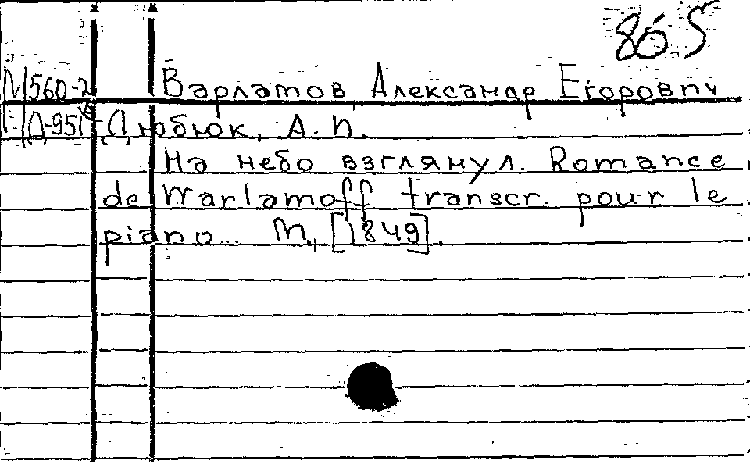 865
М560-2 Варламов, Александр Егорович
Д-95 Дюбюк, А. И.
На небо взглянул. Romance
de Warlamoff transcr. pour le
piano... М., [1849].